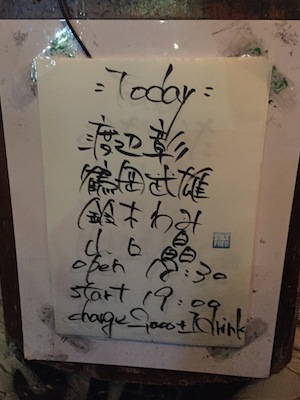 =Today=
渡辺彰
鶴岡武雄
鈴木わみ
open 18:30
start 19:00
charge 2000+1drink